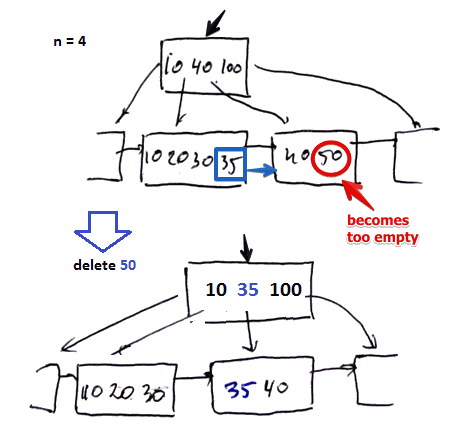 n = 4
10 40 100
10 20 30 35
40 50
becomes
too empty
delete 50
10 35 100
10 20 30
35 40